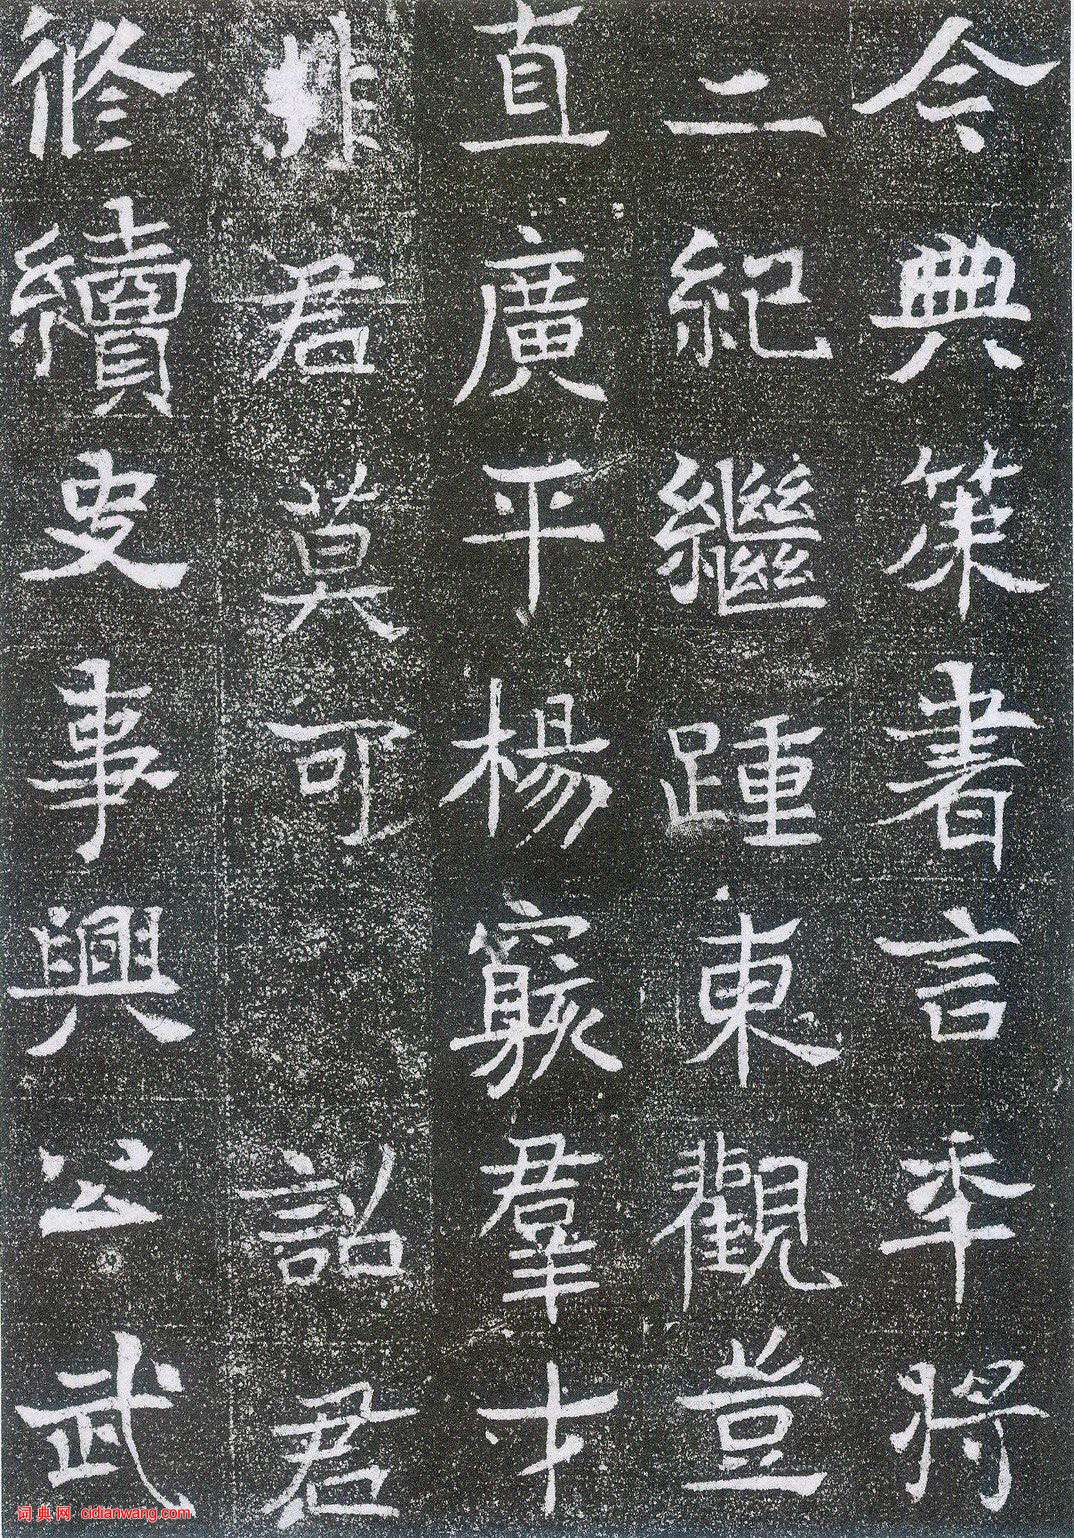 今典策書言年將
二紀繼踵東觀豈
直廣平楊羣才
非君莫可詔君
修續史事興公武
词典网 cidianwang.com